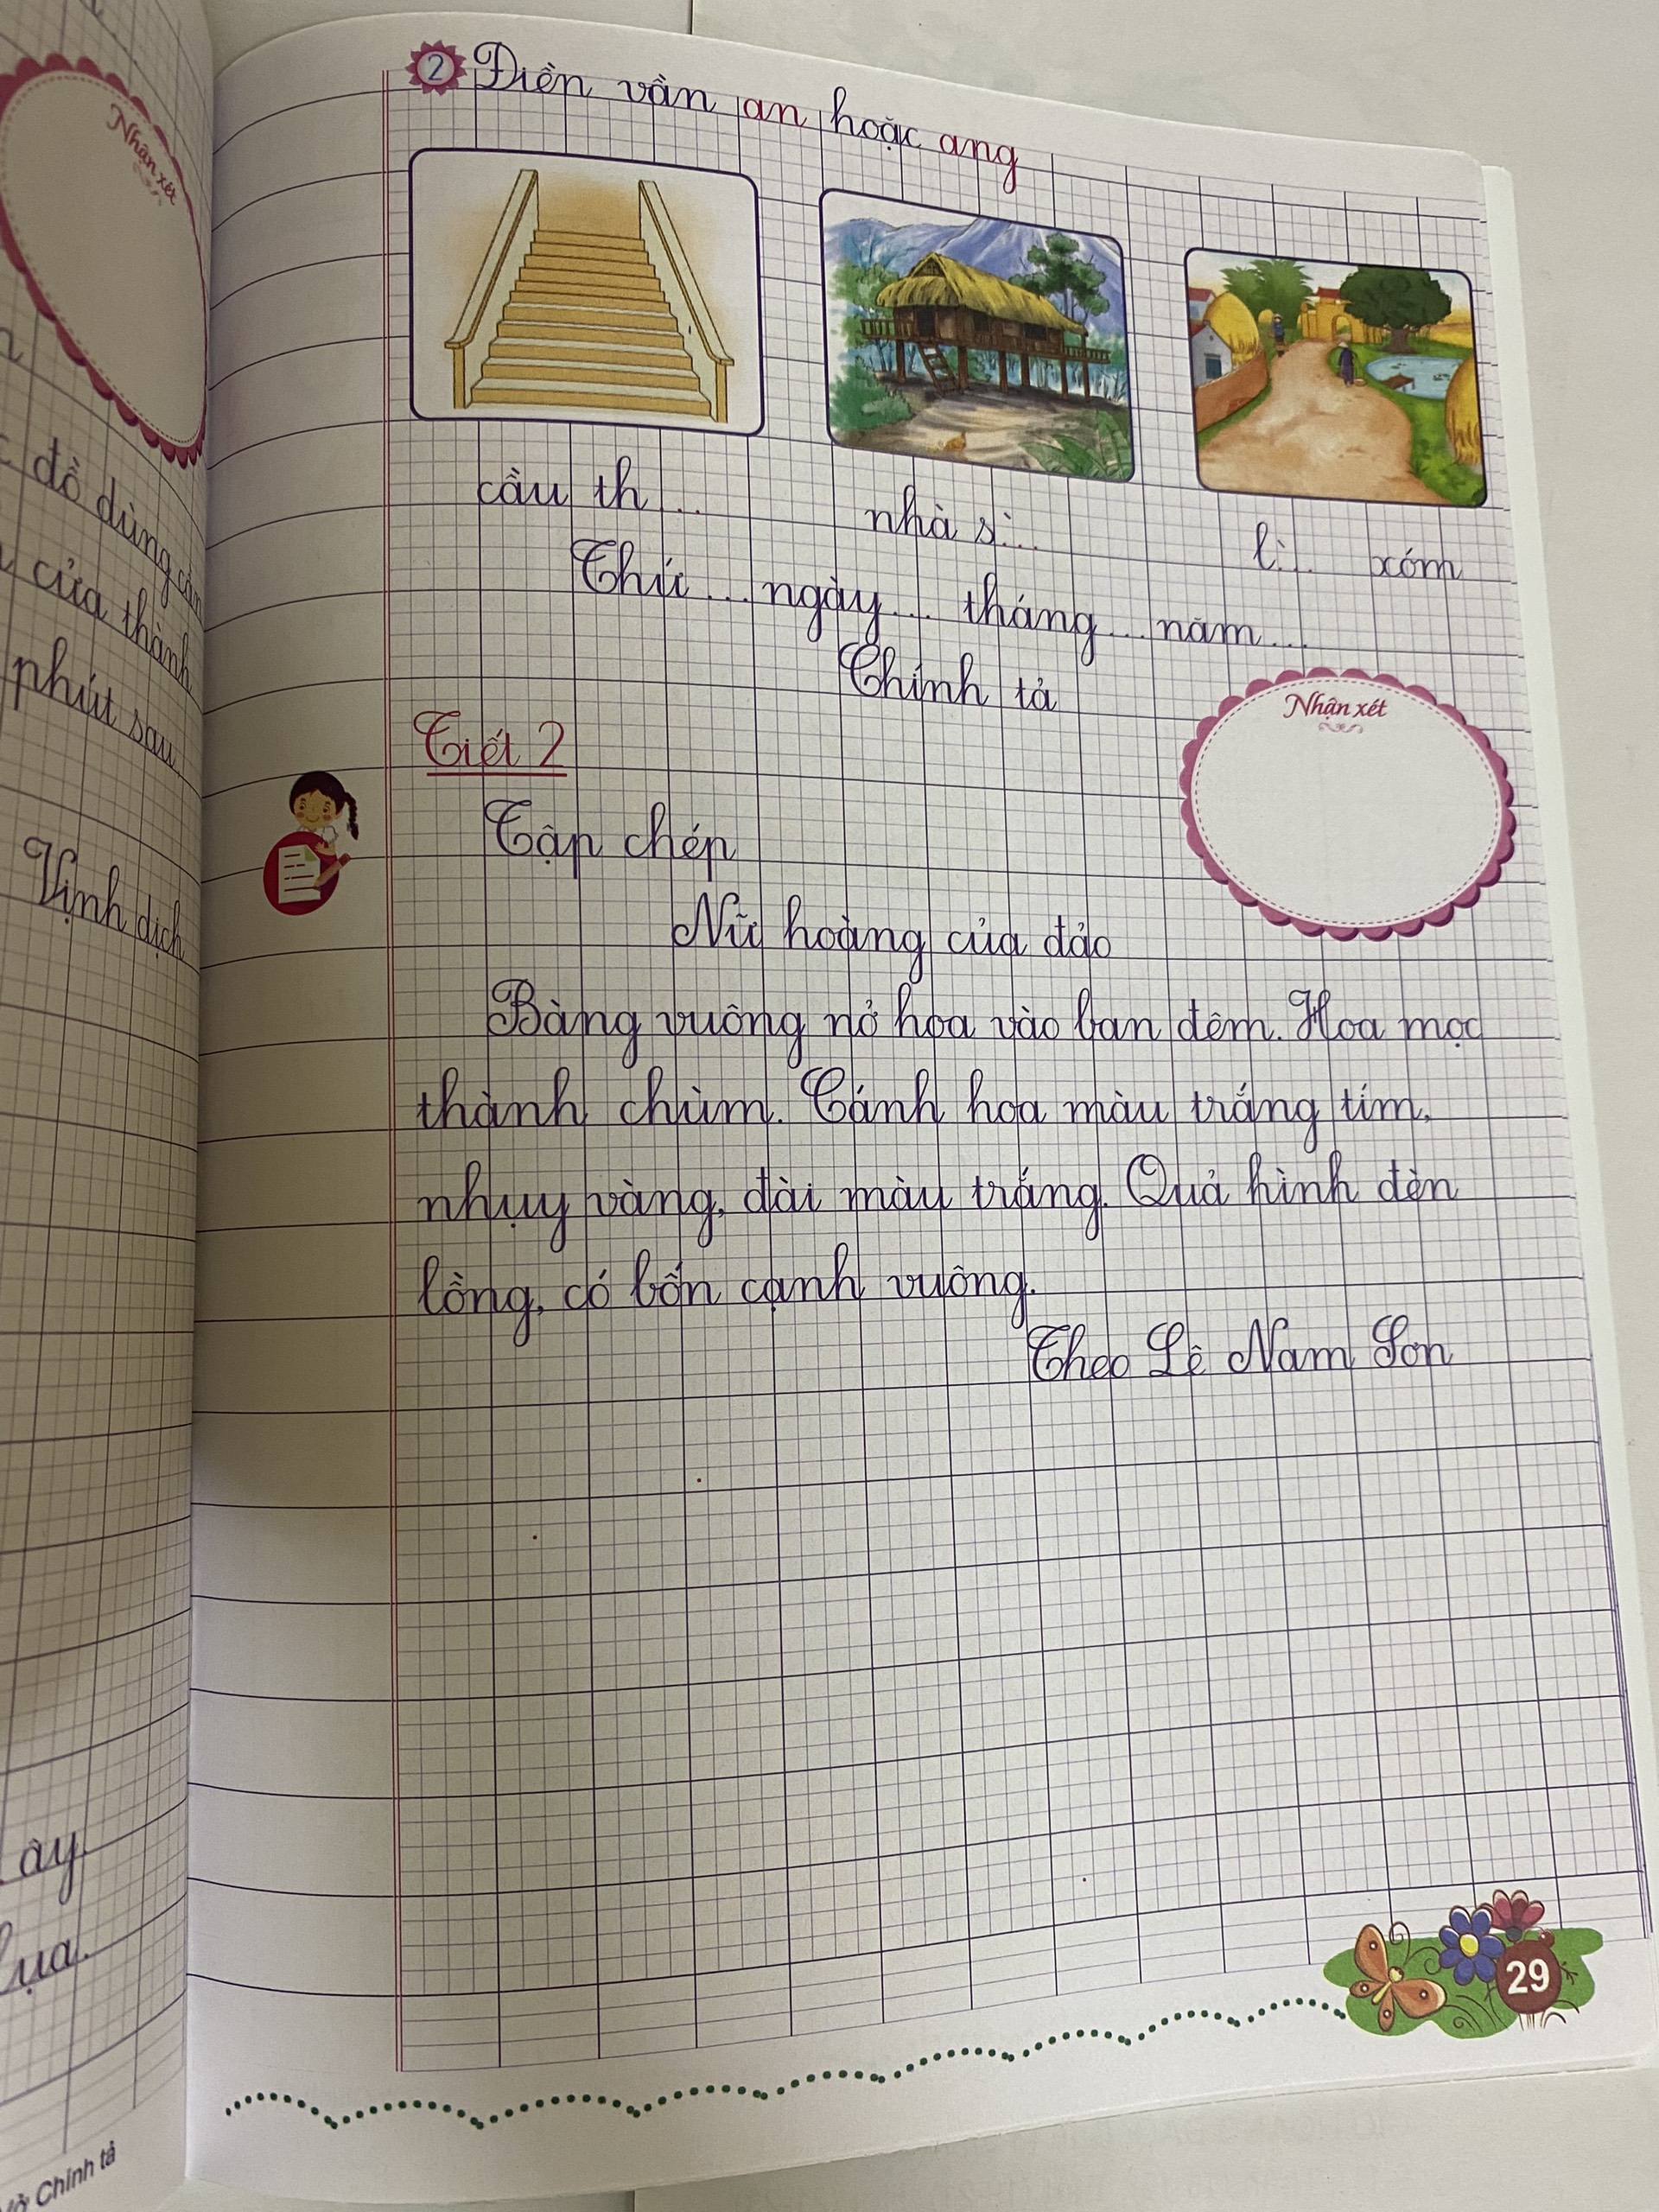 Nhận xét
đồ dùng cần
cửa thành
phút sau
Vịnh dịch
ây
lụa.
Vở Chính tả
2 Điền vần an hoặc ang
cầu th...
nhà s̀...
l̀... xóm
Thứ... ngày... tháng... năm...
Chính tả
Nhận xét
Tiết 2
Tập chép
Nữ hoàng của đảo
Bàng vuông nở hoa vào ban đêm. Hoa mọc
thành chùm. Cánh hoa màu trắng tím,
nhụy vàng, dài màu trắng. Quả hình đèn
lồng, có bốn cạnh vuông.
Theo Lê Nam Sơn
29